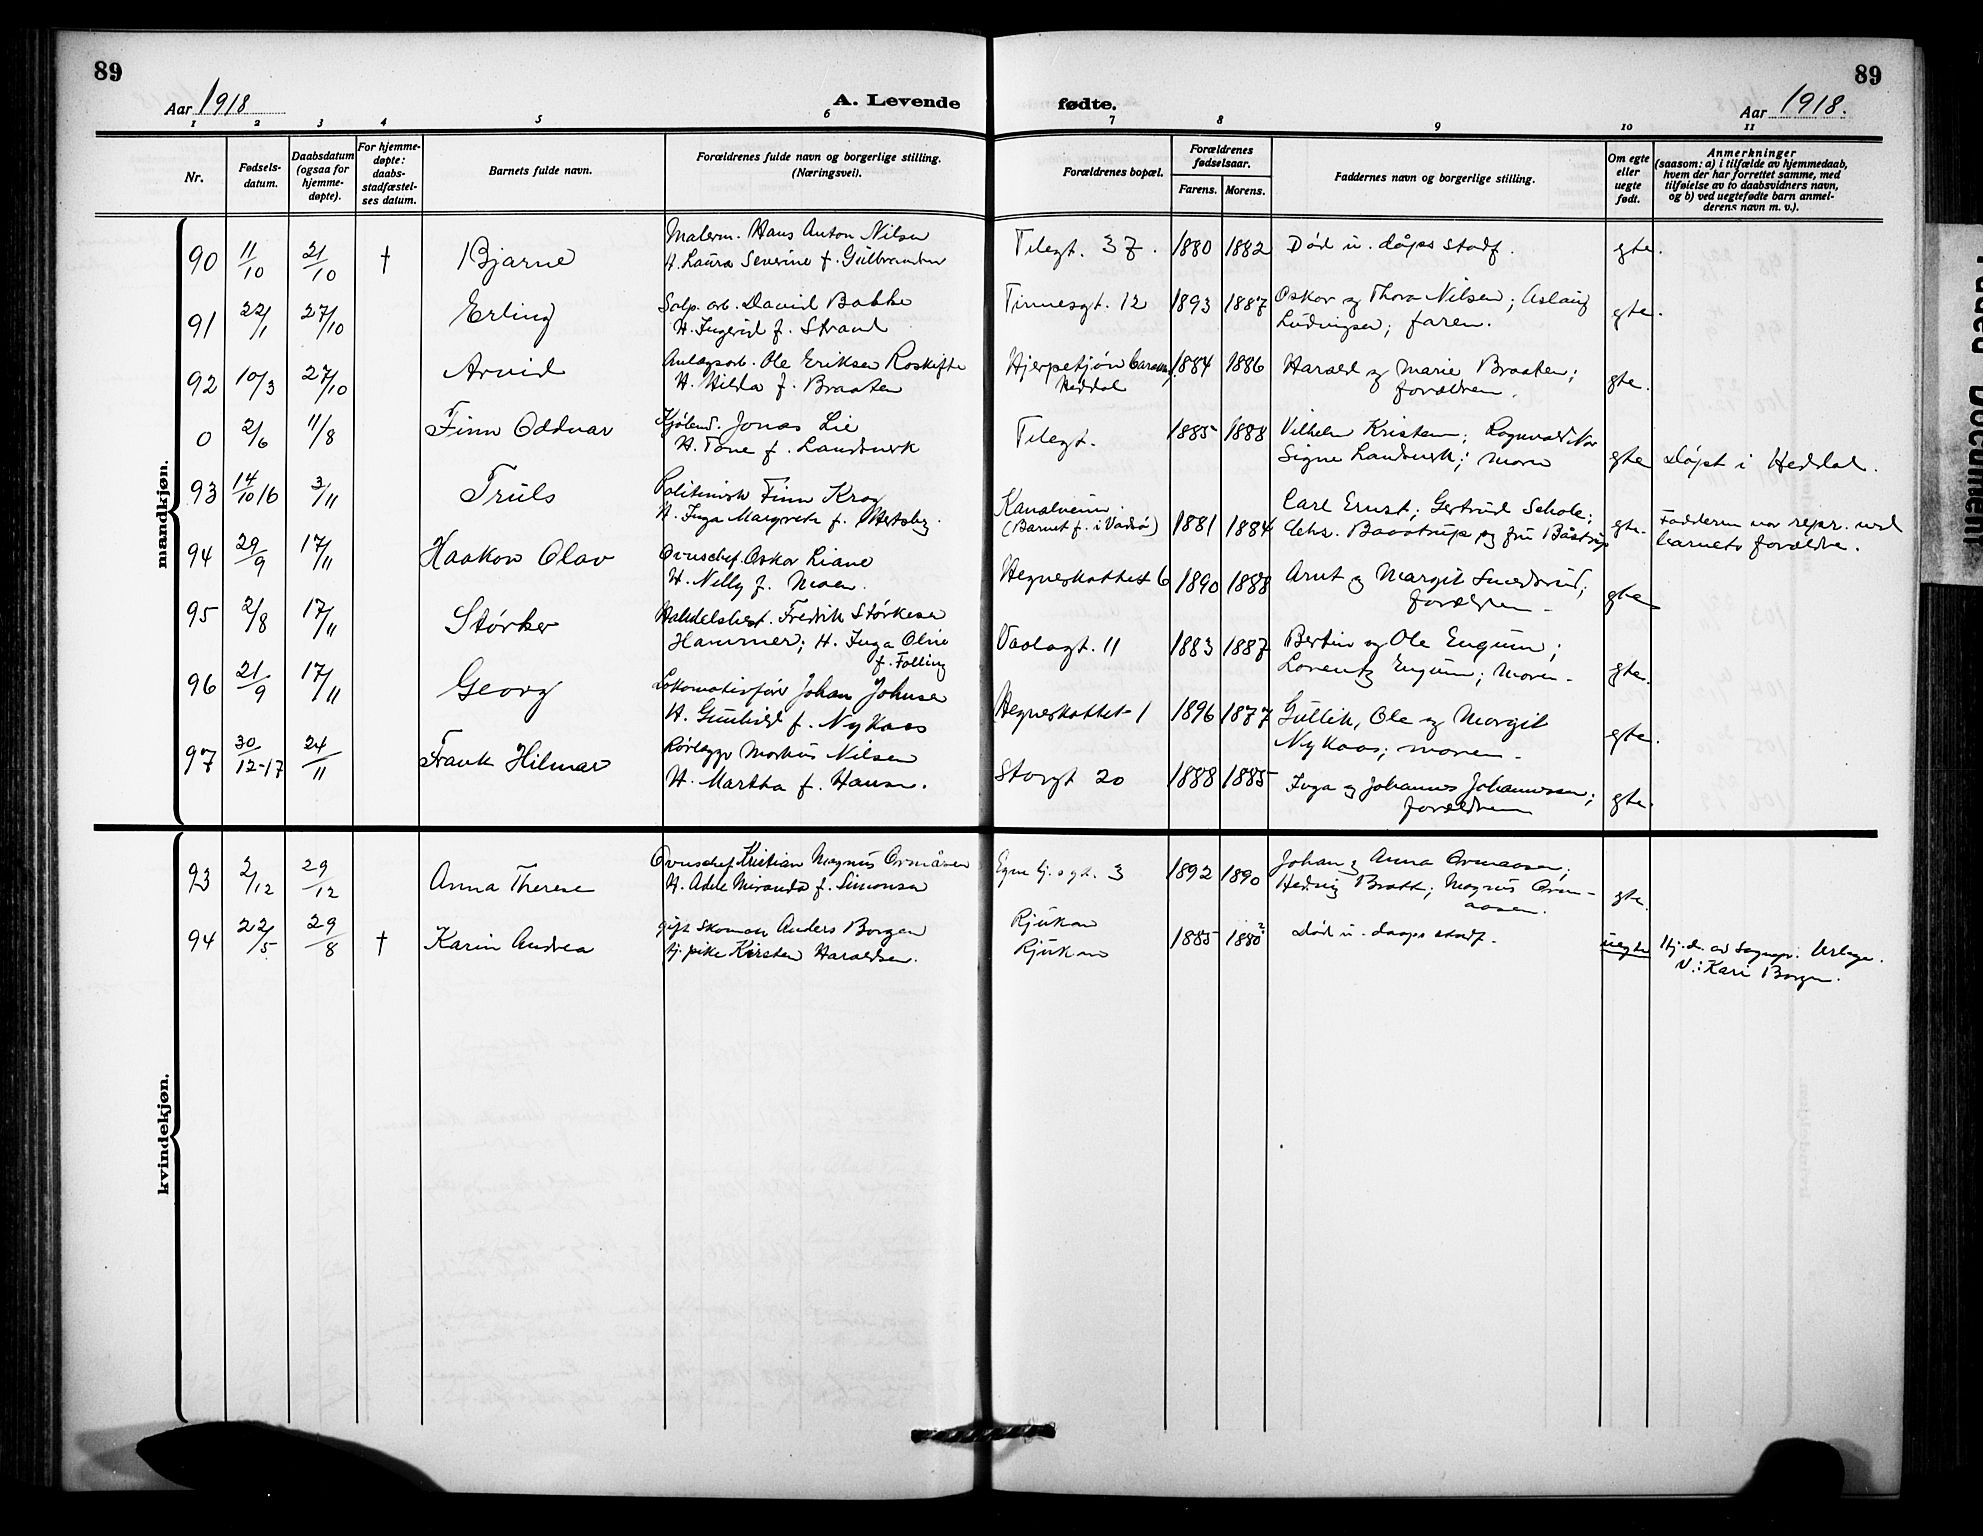 89
Aar 1918
A. Levende
fødte.
89
Aar 1918.
1 2 3 4 5 6 7 8 9 10 11
Nr.
Fødsels-
datum.
Daabsdatum
(ogsaa for
hjemme-
døpte).
For hjemme-
døpte:
daabs-
stadfæstel-
ses datum.
Barnets fulde navn.
Forældrenes fulde navn og borgerlige stilling.
(Næringsvei).
Forældrenes bopæl.
Forældrenes
fødselsaar.
Farens. Morens.
Faddernes navn og borgerlige stilling.
Om egte
eller
uegte
født.
Anmerkninger
(saasom: a) i tilfælde av hjemmedaab,
hvem der har forrettet samme, med
tilføielse av to daabsvidners navn,
og b) ved uegtefødte barn anmel-
derens navn m. v.).
mandkjøn.
90 11/10 21/10 † Bjarne
Malerm. Hans Anton Nilsen
H. Laura Severine f. Gulbrandsen
Telegt. 37. 1880 1882 Død u. dåps stadf. gte.
91 22/1 27/10 Erling
Salp. arb. David Bakke
H. Ingerid f. Strand
Tinnesgt. 12 1893 1887 Oskar og Thora Nilsen; Aslaug
Ludvigsen; faren. gte.
92 10/3 27/10 Arvid
Anlægsarb. Ole Eriksen Roskifte
H. Hilda f. Braaten
Hjerpetjøn
Heddal 1884 1886 Harald og Marie Braaten;
forældren. gte.
0 2/6 11/8 Finn Oddvar
Jonas Lie
H. Tone f. Landsverk
Telegt. 1885 1888 Vilhelm Kristensen; Ragnvald
Signe Landsverk; moren gte Døpt i Heddal.
93 14/10 16 3/11 Truls
Politimest. Finn Krog
H. Inga Margrete f. Hertzberg.
Kanalveien.
(Barnet f. i Vadsø) 1881 1884 Carl Ernst; Gertrud Schole;
Baastrup og fru Båstrup gte. Fadderne var repr. ved
barnets forældre.
94 29/9 17/11 Haakon Olav
Ovnschef Oskar Liane
H. Nelly f. Moen.
Hegneskottet 6 1890 1888 Arnt og Margit Smedsrud;
forældren. gte
95 2/8 17/11 Størker
Handelsbest. Fredrik Størkesen
Hammer; H. Inga Oline
f. Folling
Vaolagt. 11 1883 1887 Bertin og Ole Engum;
Lorentz Engum; moren. gte.
96 21/9 17/11 Georg
Lokomotivfører Johan Johnsen
H. Gunhild f. Nykaas
Hegneskottet 1 1896 1877 Gullik, Ole og Margit
Nykaas; moren. gte.
97 30/12-17 24/11 Frank Hilmar
Rørlegger Markus Nilsen
H. Martha f. Hansen.
Storgt 20 1888 1885 Inga og Johannes Johannessen;
forældren gte.
kvindekjøn.
93 2/12 29/12 Anna Therese
Ovnschef Kristian Magnus Ormåsen
H. Adele Miranda f. Simonsen
Egne hj. s gt. 3 1892 1890 Johan og Anna Ormaasen;
Hedvig Bratt; Magnus Orm-
aasen. gte.
94 22/5 29/8 † Karin Andrea
gift Skomak. Anders Borgen
tj. pike Kirsten Haraldsen.
Rjukan
Rjukan 1885 1880? Død u. daaps stadf. uegte Hj. d. av Sognepr.
V.: Kari Borgen.